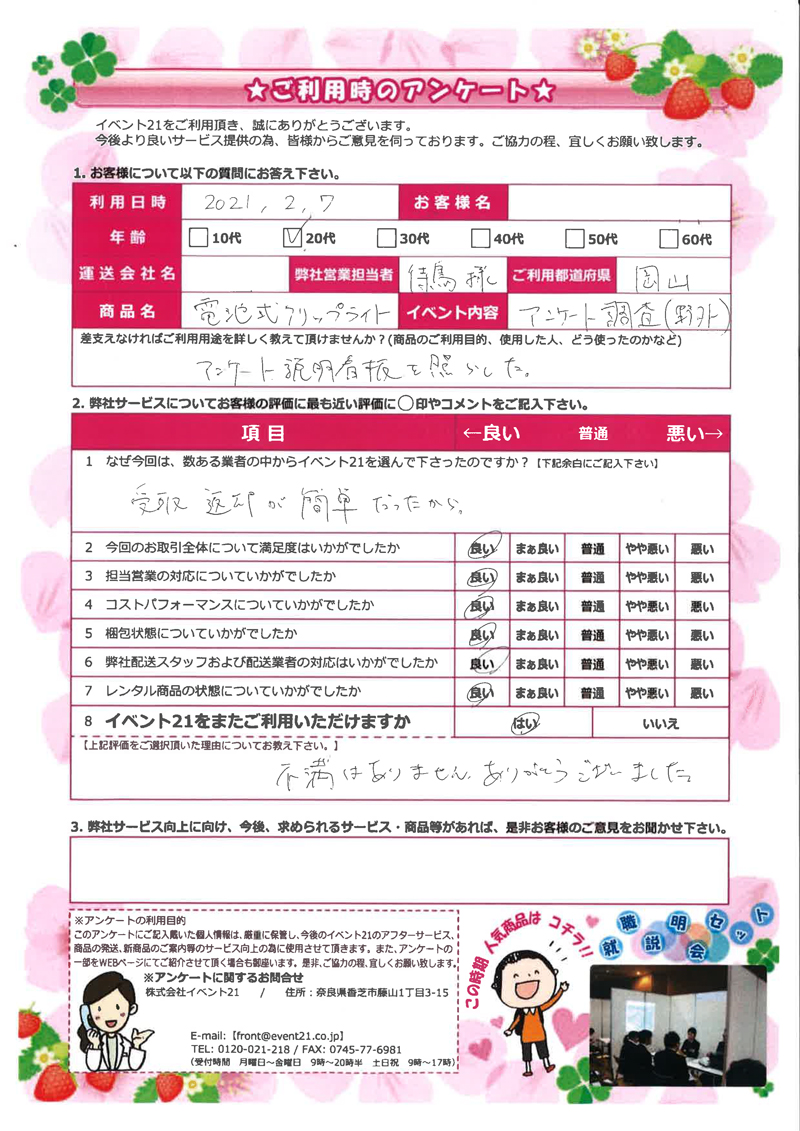 ★ご利用時のアンケート★
イベント21をご利用頂き、誠にありがとうございます。
今後より良いサービス提供の為、皆様からご意見を伺っております。ご協力の程、宜しくお願い致します。
1. お客様について以下の質問にお答え下さい。
利用日時 2021, 2, 7 お客様名
年齢 10代 20代 30代 40代 50代 60代
運送会社名 弊社営業担当者 待鳥様 ご利用都道府県 岡山
商品名 電池式クリップライト イベント内容 アンケート調査(野外)
差支えなければご利用用途を詳しく教えて頂けませんか？(商品のご利用目的、使用した人、どう使ったのかなど)
アンケート説明看板を照らした。
2. 弊社サービスについてお客様の評価に最も近い評価に○印やコメントをご記入下さい。
項目 ←良い 普通 悪い→
1 なぜ今回は、数ある業者の中からイベント21を選んで下さったのですか？【下記余白にご記入下さい】
受取返却が簡単だったから。
2 今回のお取引全体について満足度はいかがでしたか 良い まぁ良い 普通 やや悪い 悪い
3 担当営業の対応についていかがでしたか 良い まぁ良い 普通 やや悪い 悪い
4 コストパフォーマンスについていかがでしたか 良い まぁ良い 普通 やや悪い 悪い
5 梱包状態についていかがでしたか 良い まぁ良い 普通 やや悪い 悪い
6 弊社配送スタッフおよび配送業者の対応はいかがでしたか 良い まぁ良い 普通 やや悪い 悪い
7 レンタル商品の状態についていかがでしたか 良い まぁ良い 普通 やや悪い 悪い
8 イベント21をまたご利用いただけますか はい いいえ
【上記評価をご選択頂いた理由についてお教え下さい。】
不満はありません。ありがとうございました。
3. 弊社サービス向上に向け、今後、求められるサービス・商品等があれば、是非お客様のご意見をお聞かせ下さい。
※アンケートの利用目的
このアンケートにご記入戴いた個人情報は、厳重に保管し、今後のイベント21のアフターサービス、
商品の発送、新商品のご案内等のサービス向上の為に使用させて頂きます。また、アンケートの
一部をWEBページにてご紹介させて頂く場合も御座います。是非、ご協力の程、宜しくお願い致します。
※アンケートに関するお問合せ
株式会社イベント21 / 住所：奈良県香芝市藤山1丁目3-15
E-mail:【front@event21.co.jp】
TEL: 0120-021-218 / FAX: 0745-77-6981
(受付時間 月曜日～金曜日 9時～20時半 土日祝 9時～17時)
この時期 人気商品は コチラ!!
就職説明会セット